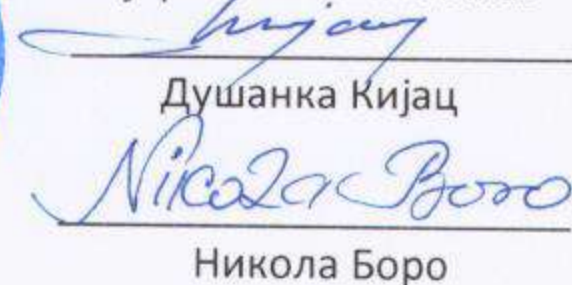 Душанка Кијац
Nikola Boro
Никола Боро